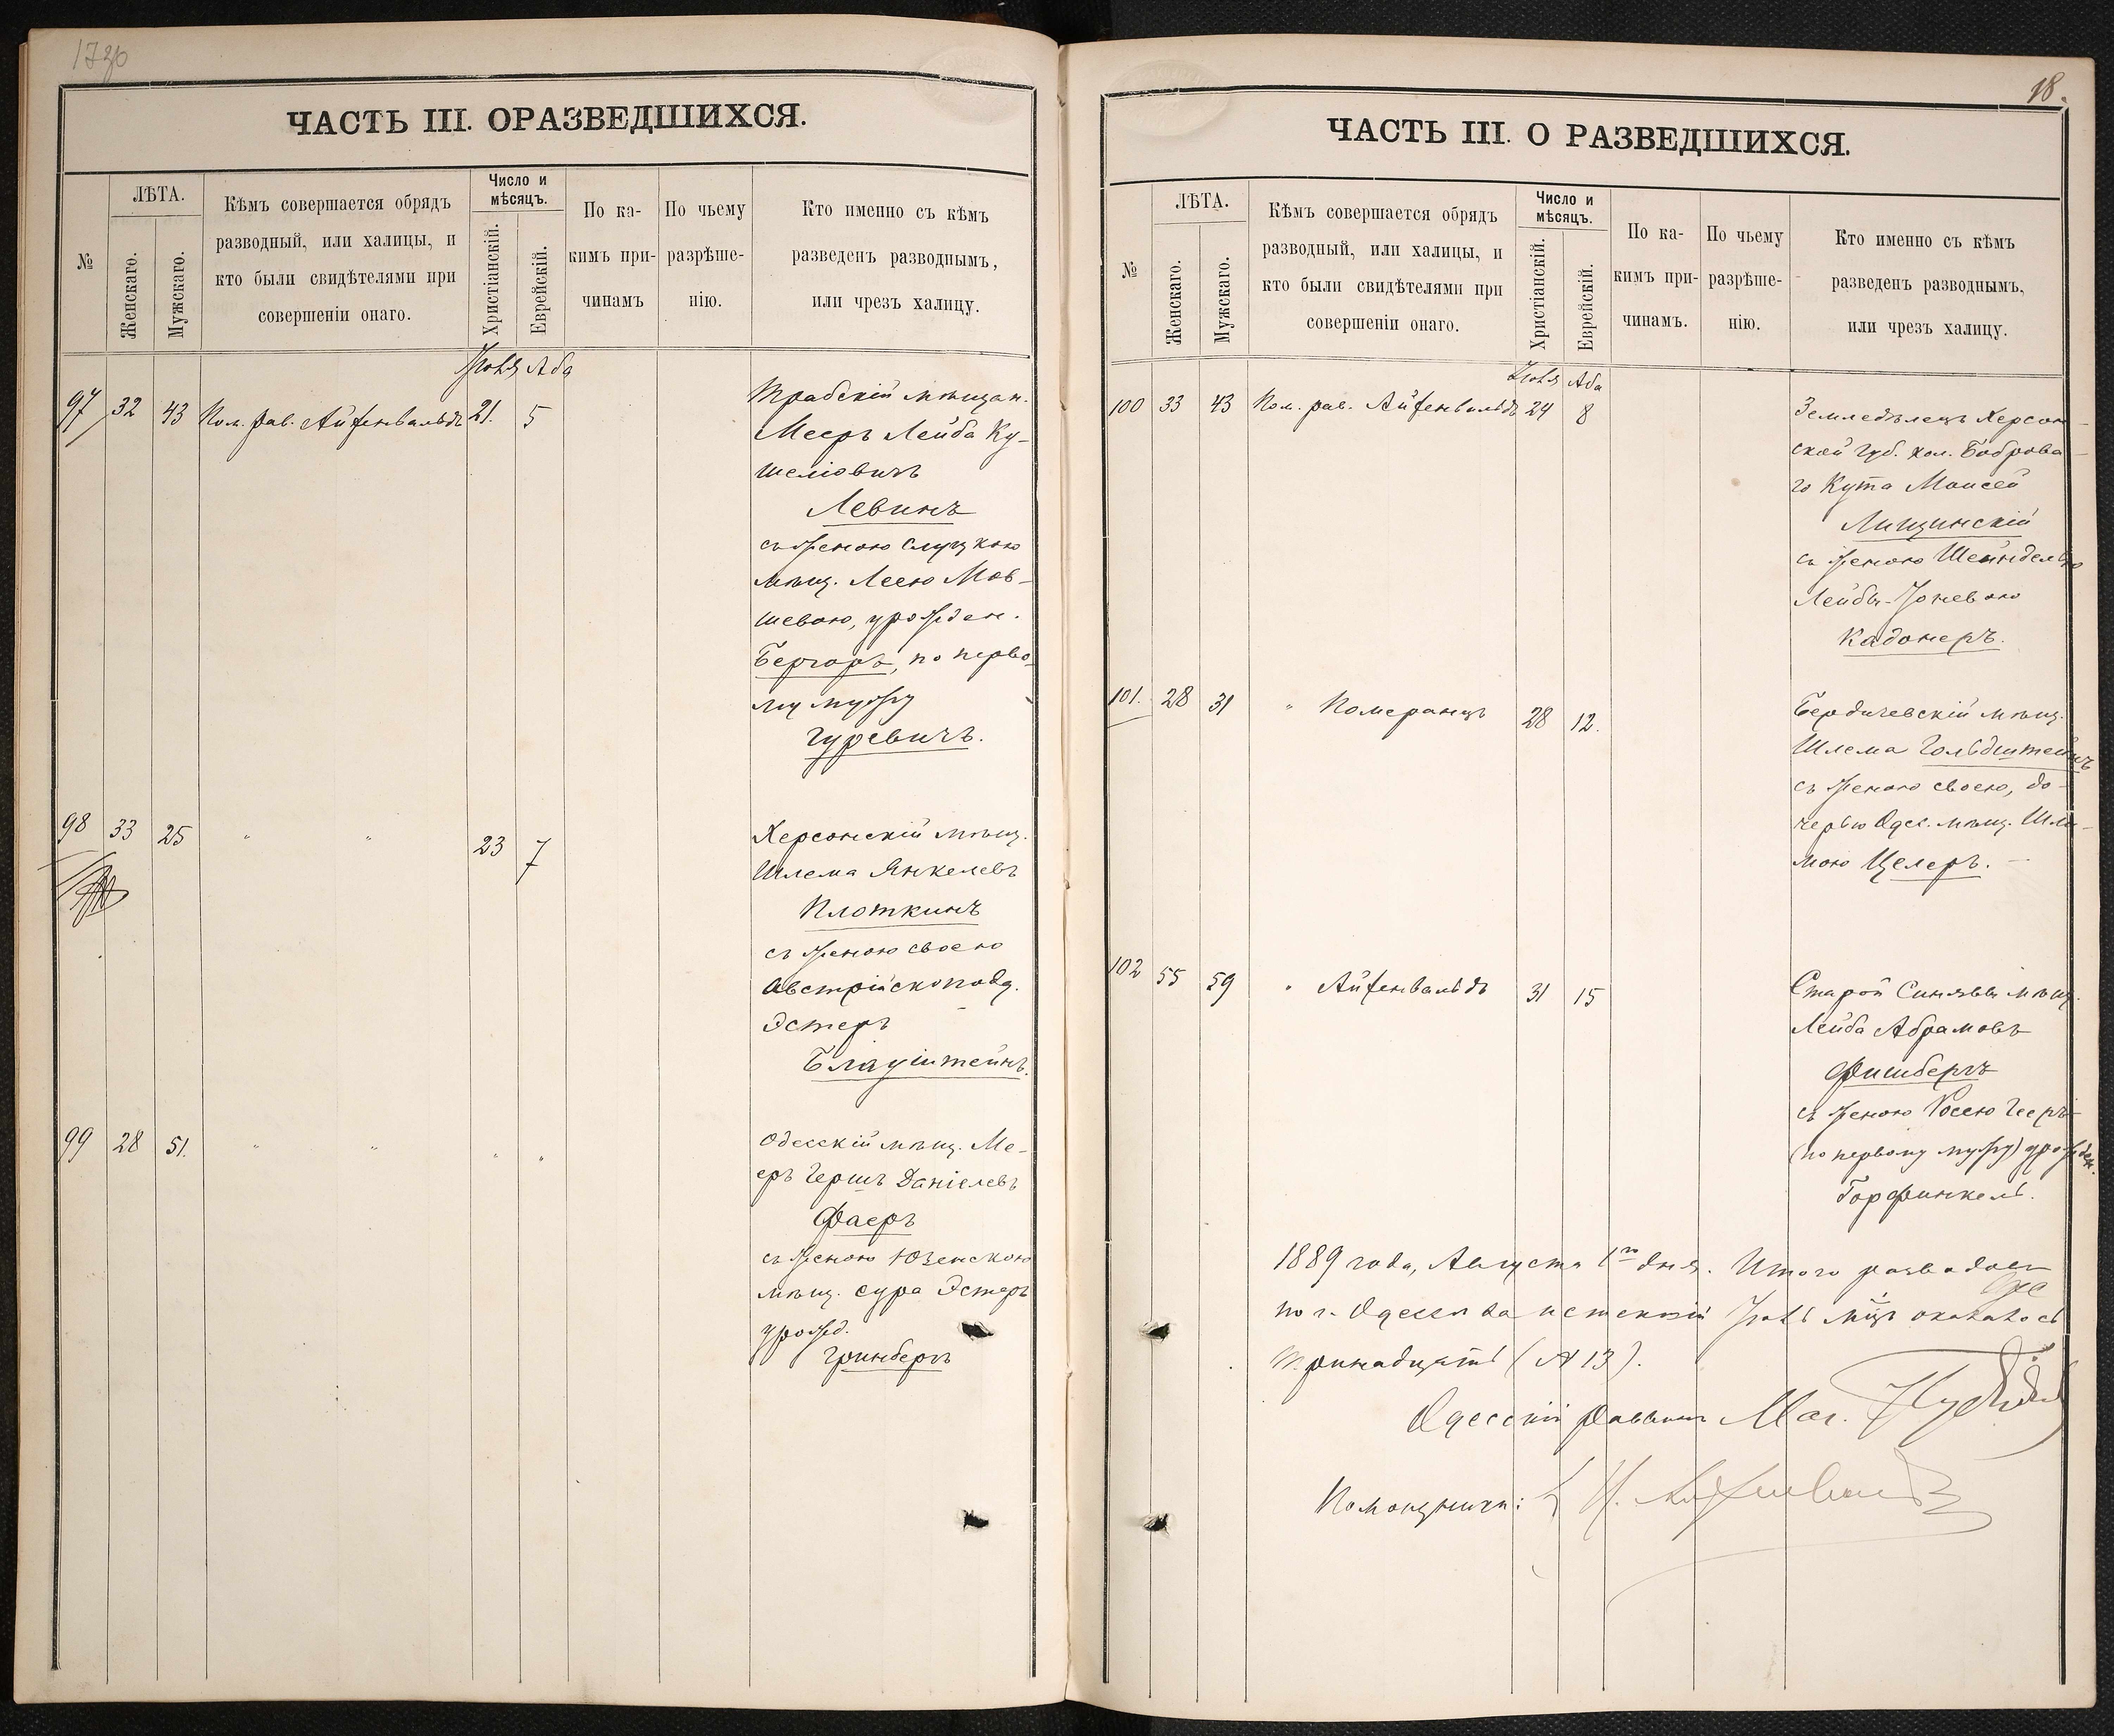 ЧАСТЬ III. О РАЗВЕДШИХСЯ.
№
ЛѢТА.
Женскаго.
Мужскаго.
Кѣмъ совершается обрядъ
разводный, или халицы, и
кто были свидѣтелями при
совершеніи онаго.
Число и
мѣсяцъ.
Христіанскій.
Еврейскій.
По ка-
кимъ при-
чинамъ
По чьему
разрѣше-
нію.
Кто именно съ кѣмъ
разведенъ разводнымъ,
или чрезъ халицу.
Іюля Аба
97 32 43 Пом. рав. Айзенвальдъ 21. 5
Трабскій мѣщан.
Мееръ Лейба Ку-
шеліовичъ
Левинъ
съ женою Слуцкою
мѣщ. Леею Мов-
шевою, урожден.
Бергеръ, по перво-
му мужу
Гуревичъ.
98 33 25 " " 23 7
Херсонскій мѣщ.
Шлема Янкелевъ
Плоткинъ
съ женою своею
австрійскоподд.
Эстеръ
99 28 51. " " " "
Одесскій мѣщ. Ме-
еръ Гершъ Даніелевъ
Фаеръ
съ женою Юзенскою
мѣщ. Сура Эстеръ
урожд.
Гринбергъ
18.
ЧАСТЬ III. О РАЗВЕДШИХСЯ.
№
ЛѢТА.
Женскаго.
Мужскаго.
Кѣмъ совершается обрядъ
разводный, или халицы, и
кто были свидѣтелями при
совершеніи онаго.
Число и
мѣсяцъ.
Христіанскій.
Еврейскій.
По ка-
кимъ при-
чинамъ.
По чьему
разрѣше-
нію.
Кто именно съ кѣмъ
разведенъ разводнымъ,
или чрезъ халицу.
Іюля Аба
100 33 43 Пом. рав. Айзенвальдъ 24 8
Земледѣлецъ Херсон-
ской губ. кол. Боброва-
го Кута Моисей
Лищинскій
съ женою Шейнделью
Лейбы-Іоневою
Кадонеръ.
101. 28 31 " Померанцъ 28 12.
Бердичевскій мѣщ.
Шлема Гольдштейнъ
съ женою своею, до-
черью Одес. мѣщ. Шле-
мою Целеръ.
102 55 59 " Айзенвальдъ 31 15
Старой Синявы мѣщ.
Лейба Абрамовъ
Фишбергъ
съ женою Росею
(по первому мужу) урожден.
Горфинкель.
1889 года, Августа 1го дня. Итого разводовъ
по г. Одессѣ за истекшій Іюль мѣц. оказалось
тринадцать (№ 13).
Одесскій Раввинъ Маг.
Помощники: